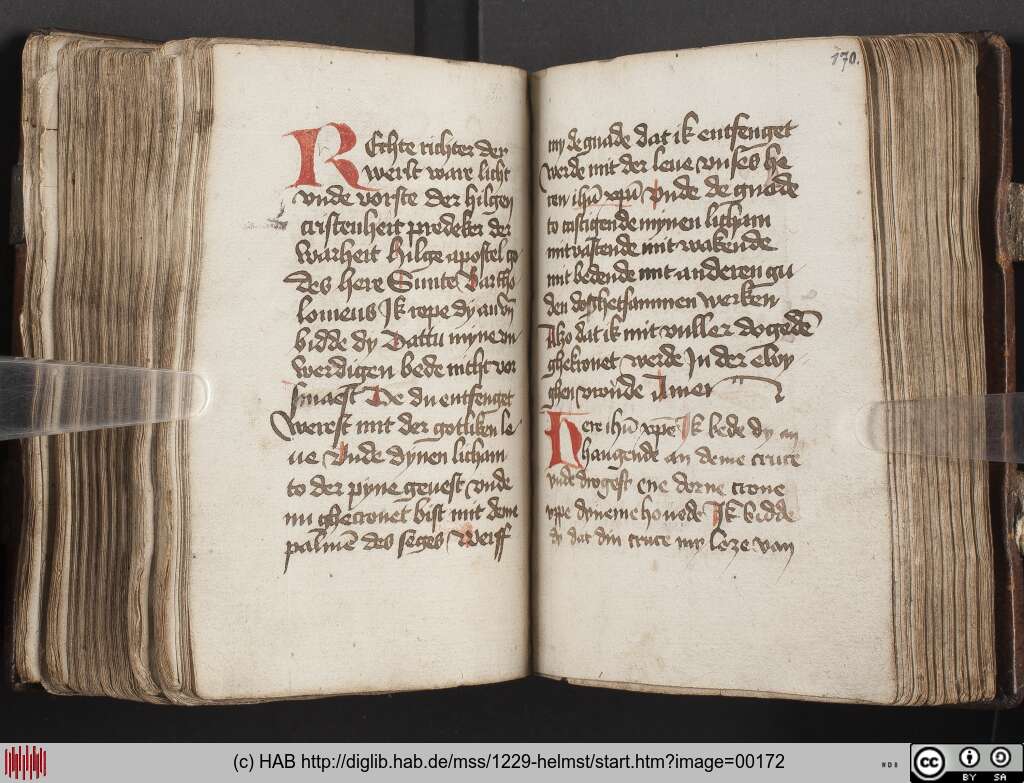 REchte richter der
werlt ware licht
vnde vorste der hilgen
cristenheit prediker der
warheit hilge apostel go
des here Sunte Bartho
lomeus Ik rope dy an vn̄
bidde dy Dattu myne vn
werdigen bede nicht vor
smaest De du entfenget
werest mit der gotliken le
ue Vnde dynen licham
to der pyne geuest vnde
nu ghecronet bist mit dem
palmē des seges Werff
170.
my de gnade dat ik entfenget
werde mit der leue vnses he
ren ihū xpū Vnde de gnade
to castigende mynen licham
mit vastende mit wakende
mit bedende mit anderen gu
den doghetsammen werken
Also dat ik mit vuller dogedē
ghekronet werde In der ewy
ghen vroude Amen
Here ihū xpe Ik bede dy an
hangende an deme cruce
vnde drogest ene dorne crone
vppe dyneme houede Ik bidde
dy dat din cruce my loze van
(c) HAB http://diglib.hab.de/mss/1229-helmst/start.htm?image=00172
WDB
CC BY SA